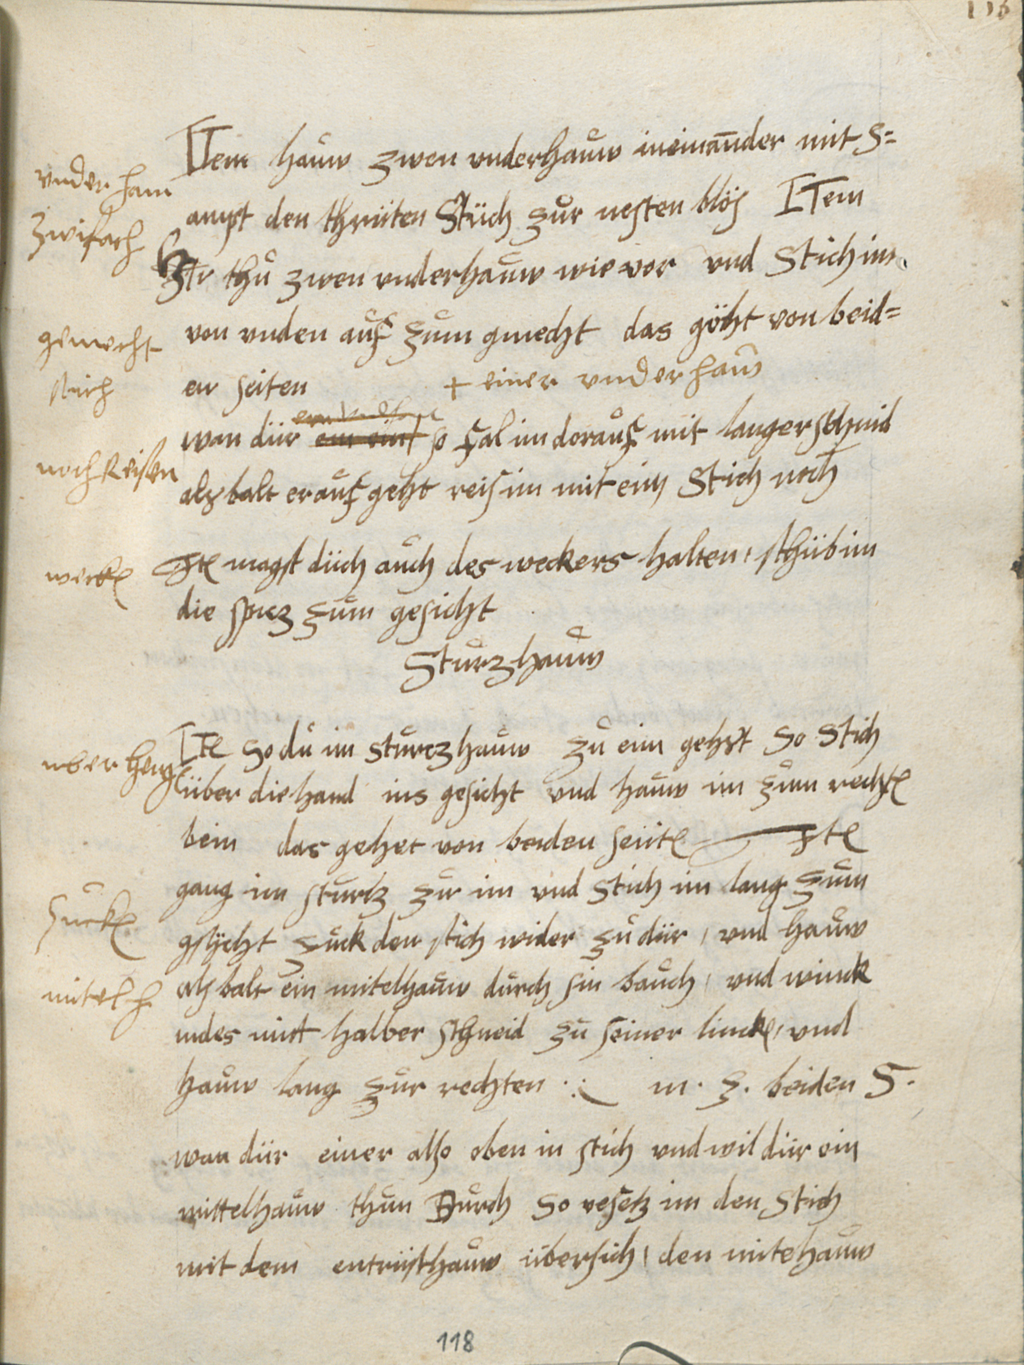 116
ITem hauw zwen vnderhauw ineinander mit S=
vnder hauw
ampt den thriten Stich zur nesten blös ITem
zwifach
thu zwen vnderhauw wie vor vnd Stich im
von vnden auf zum gmecht das göht von beid=
gemecht
stich
en seiten + einer vnderhauw
wan dür ein ein so fal im dorauf mit langer schnid
noch Reisen
alsbalt er auf geht reis im mit eim Stich noch
wecker
Ite magst düch auch des weckers halten, schüb im
die spicz zum gesicht
Sturzhauw
Ite So du im sturczhauw zu eim gehst So Stich
vber heng
über die hand ins gesicht vnd hauw im zum rechte
bein das gehet von beiden seite Ite
gang im sturtz zur im vnd stich im lang zum
zucke
gsücht zuck den stich wider zu dür, vnd hauw
mitel h
alsbalt ein mitelhauw durch sin bauch, vnd winck
indes mitt halber schneid zu seiner lincke, vnd
hauw lang zur rechten m. z. beiden S.
wan dür einer also oben in stich vnd wil dür ein
mittelhauw thun Durch So vesetz im den Stich
mit dem entrüsthauw übersich, den mitehauw
118